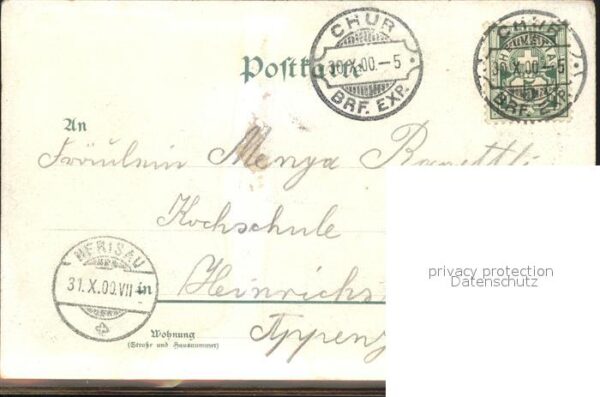 Postkarte
CHUR
30.X.00.–5
BRF. EXP.
CHUR
30.X.00.–5
BRF. EXP.
5
An
Fräulein Menga
Kochschule
HERISAU
31.X.00.VII
in Heinrichs
Appenz
Wohnung
(Straße und Hausnummer)
privacy protection
Datenschutz